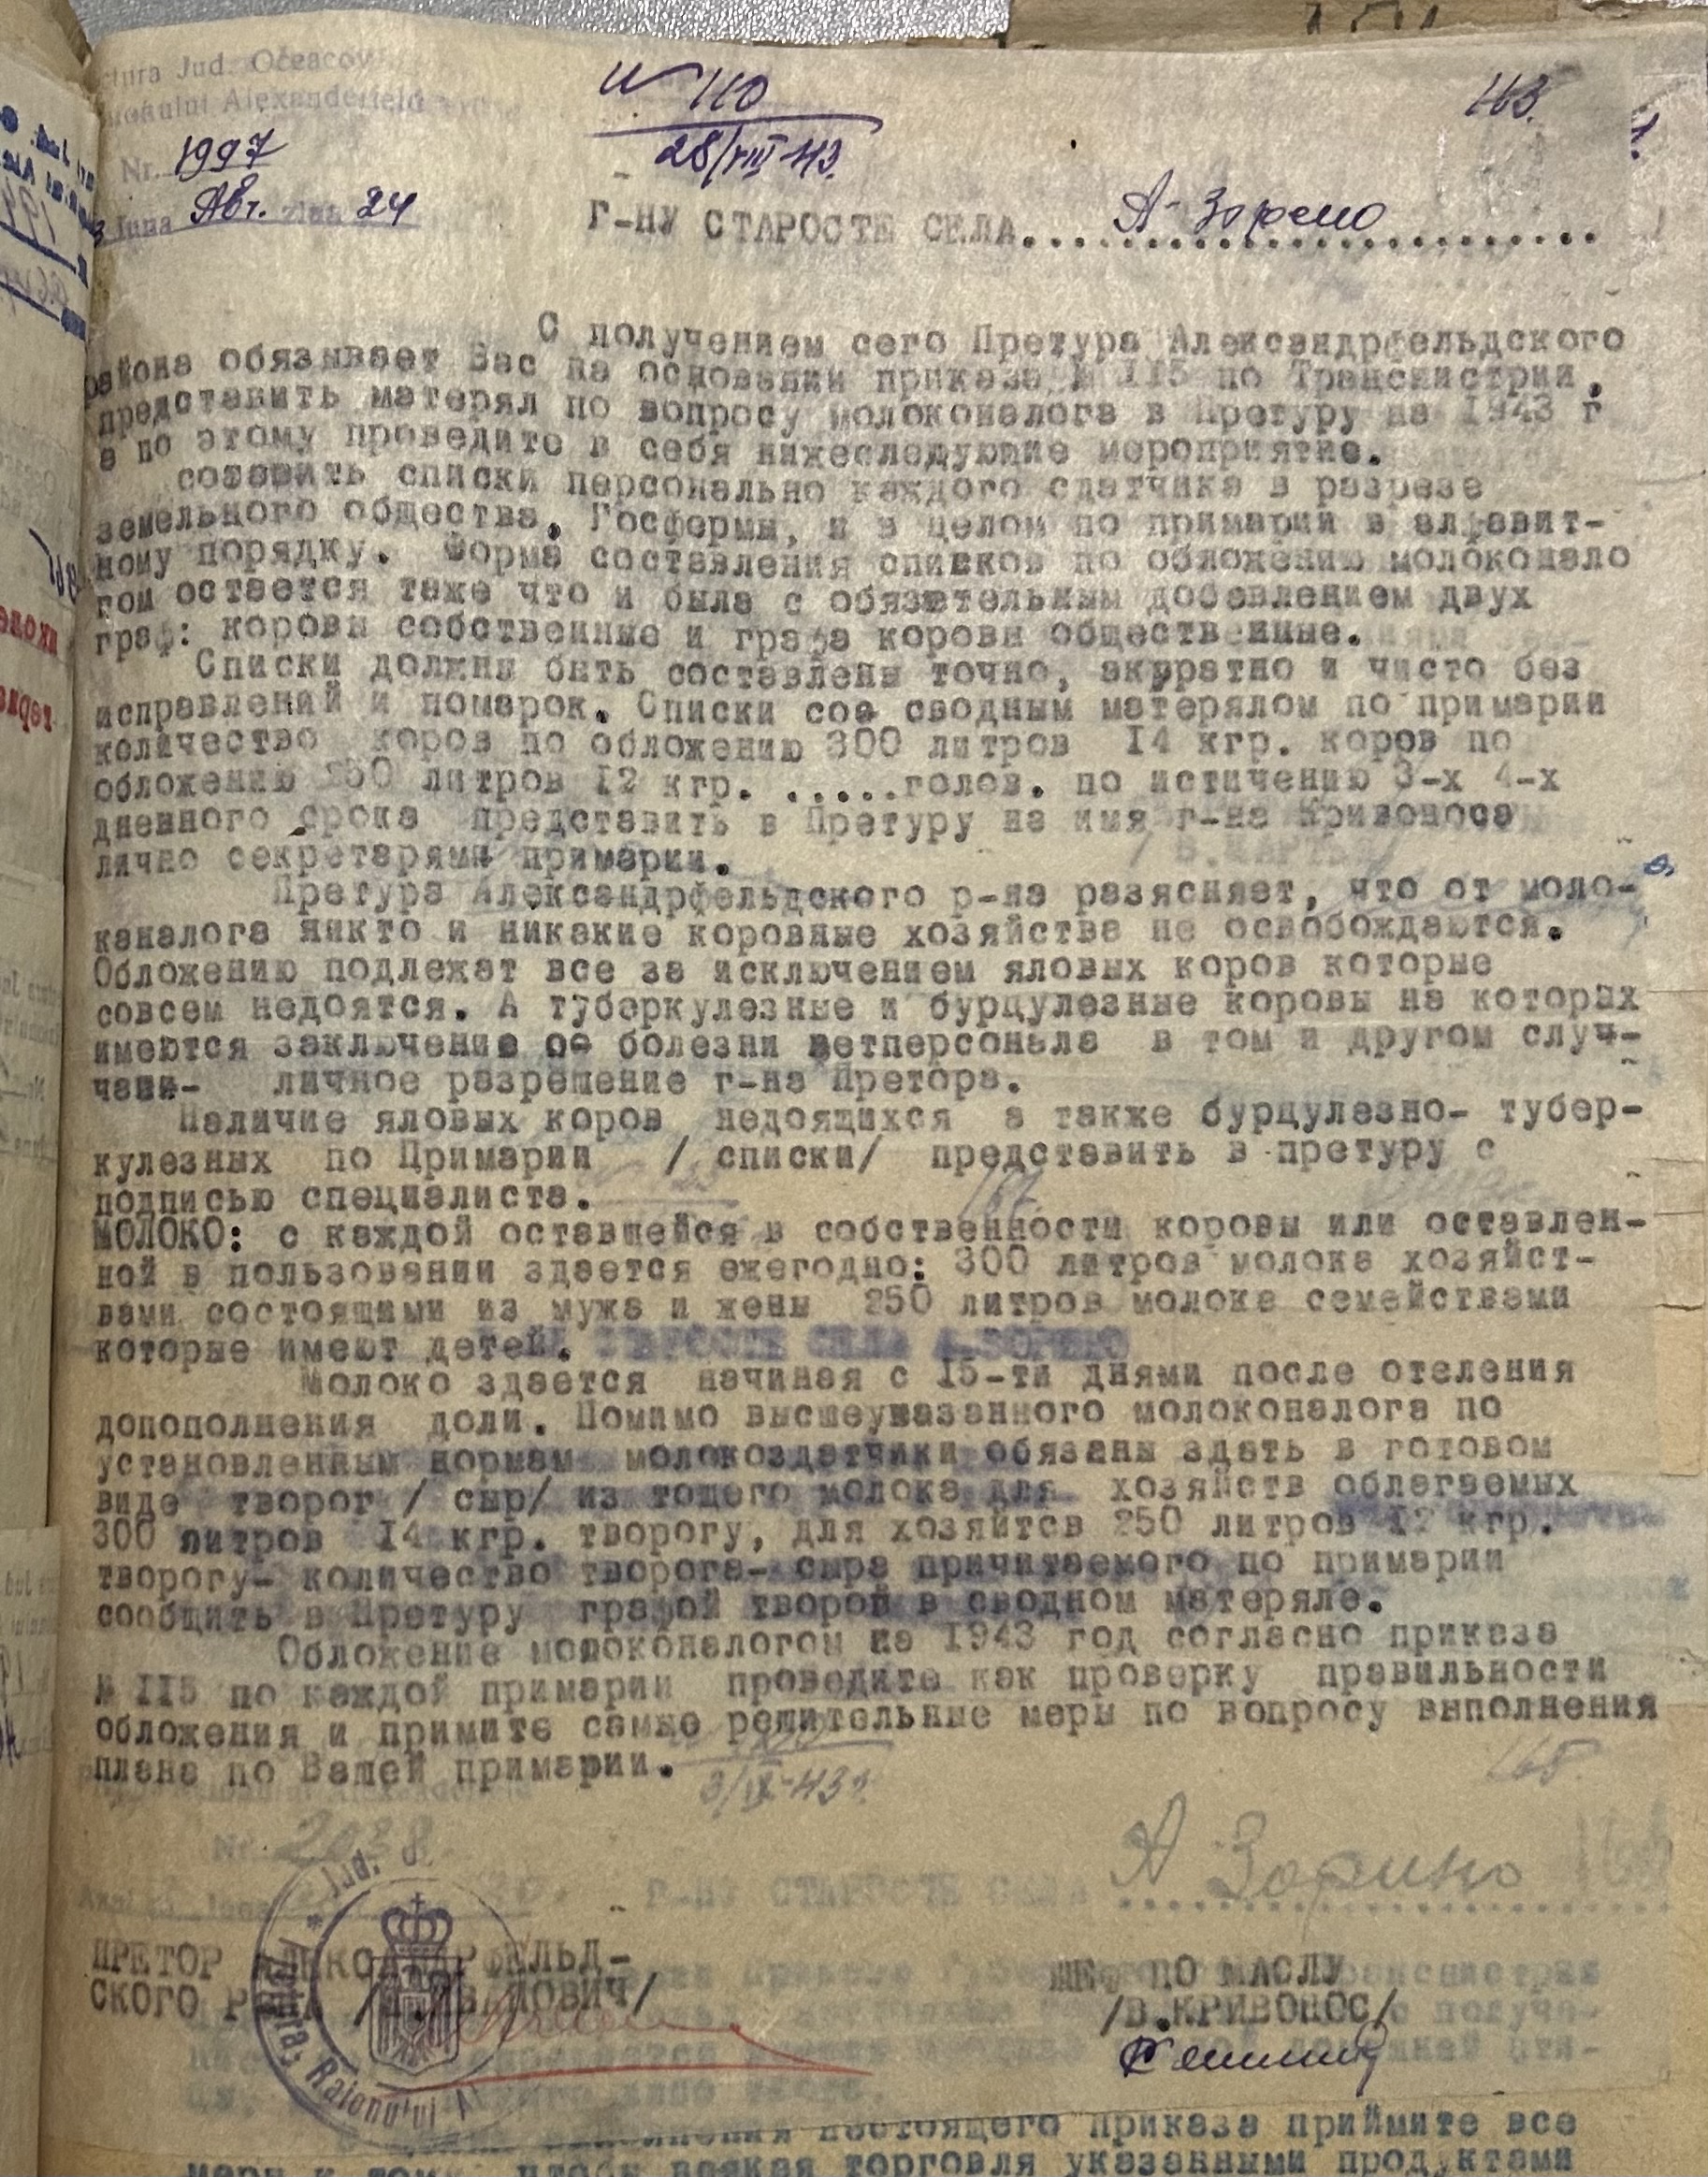 ctura Jud. Oceacov
onului Alexanderfeld
№ 110
163.
Nr. 1997
28/VIII-43.
3 luna Авг. ziua 24
Г-НУ СТАРОСТЕ СЕЛА А-Зорено
С получением сего Претура Александрфельдского
района обязывает Вас на основании приказа № 115 по Транснистрии,
представить матерял по вопросу молоконалога в Претуру на 1943 г
а по этому проведите в себя нижеследующие мероприятие.
составить списки персонально каждого сдатчика в разрезе
земельного общества, Госфермы, и в целом по примарии в алфавит-
ному порядку. Форма составления списков по обложению молоконало
гом остается таже что и была с обязательным добавлением двух
граф: коровы собственные и графа коровы общественные.
Списки должны быть составлены точно, акуратно и чисто без
исправлений и помарок. Списки соа сводным матерялом по примарии
количество коров по обложению 300 литров 14 кгр. коров по
обложению 250 литров 12 кгр. ......голов. по истичению 3-х 4-х
дневного срока представить в Претуру на имя г-на Кривоноса
лично секретарями примарии.
Претура Александрфельдского р-на разясняет, что от моло-
каналога никто и никакие коровные хозяйства не освобождаются.
Обложению подлежат все за исключением яловых коров которые
совсем недоятся. А туберкулезные и бурцулезные коровы на которых
имеются заключение ое болезни ветперсонала в том и другом случ-
чаи- личное разрешение г-на Претора.
Наличие яловых коров недоящихся а также бурцулезно- тубер-
кулезных по Примарии / списки/ представить в претуру с
подписью специалиста.
МОЛОКО: с каждой оставшейся в собственности коровы или оставлен-
ной в пользовании здается ежегодно: 300 литров молока хозяйст-
вами состоящими из мужа и жены 250 литров молока семействами
которые имеют детей.
Молоко здается начиная с 15-ти днями после отеления
допополнения доли. Помимо высшеуказанного молоконалога по
установленным нормам молокоздатчики обязаны здать в готовом
виде творог / сыр/ из тощего молока для хозяйств облегаемых
300 литров 14 кгр. творогу, для хозяйтсв 250 литров 12 кгр.
творогу- количество творога- сыра причитаемого по примарии
сообщить в Претуру графой творой в сводном матеряле.
Обложение молоконалогом на 1943 год согласно приказа
№ 115 по каждой примарии проведите как проверку правильности
обложения и примите самые решительные меры по вопросу выполнения
плана по Вашей примарии.
3/IX-43г.
165.
Nr. 2038
А Зорино
Г-НУ СТАРОСТЕ СЕЛА
ПРЕТОР АЛЕКСАНДРФЕЛЬД-
СКОГО Р-НА
ШЕФ ПО МАСЛУ
/В.КРИВОНОС/
Jud. O
Pretura, Raionului Al
настоящего приказа приймите все
меры к том чтобы всякая торговля указанными продуктами